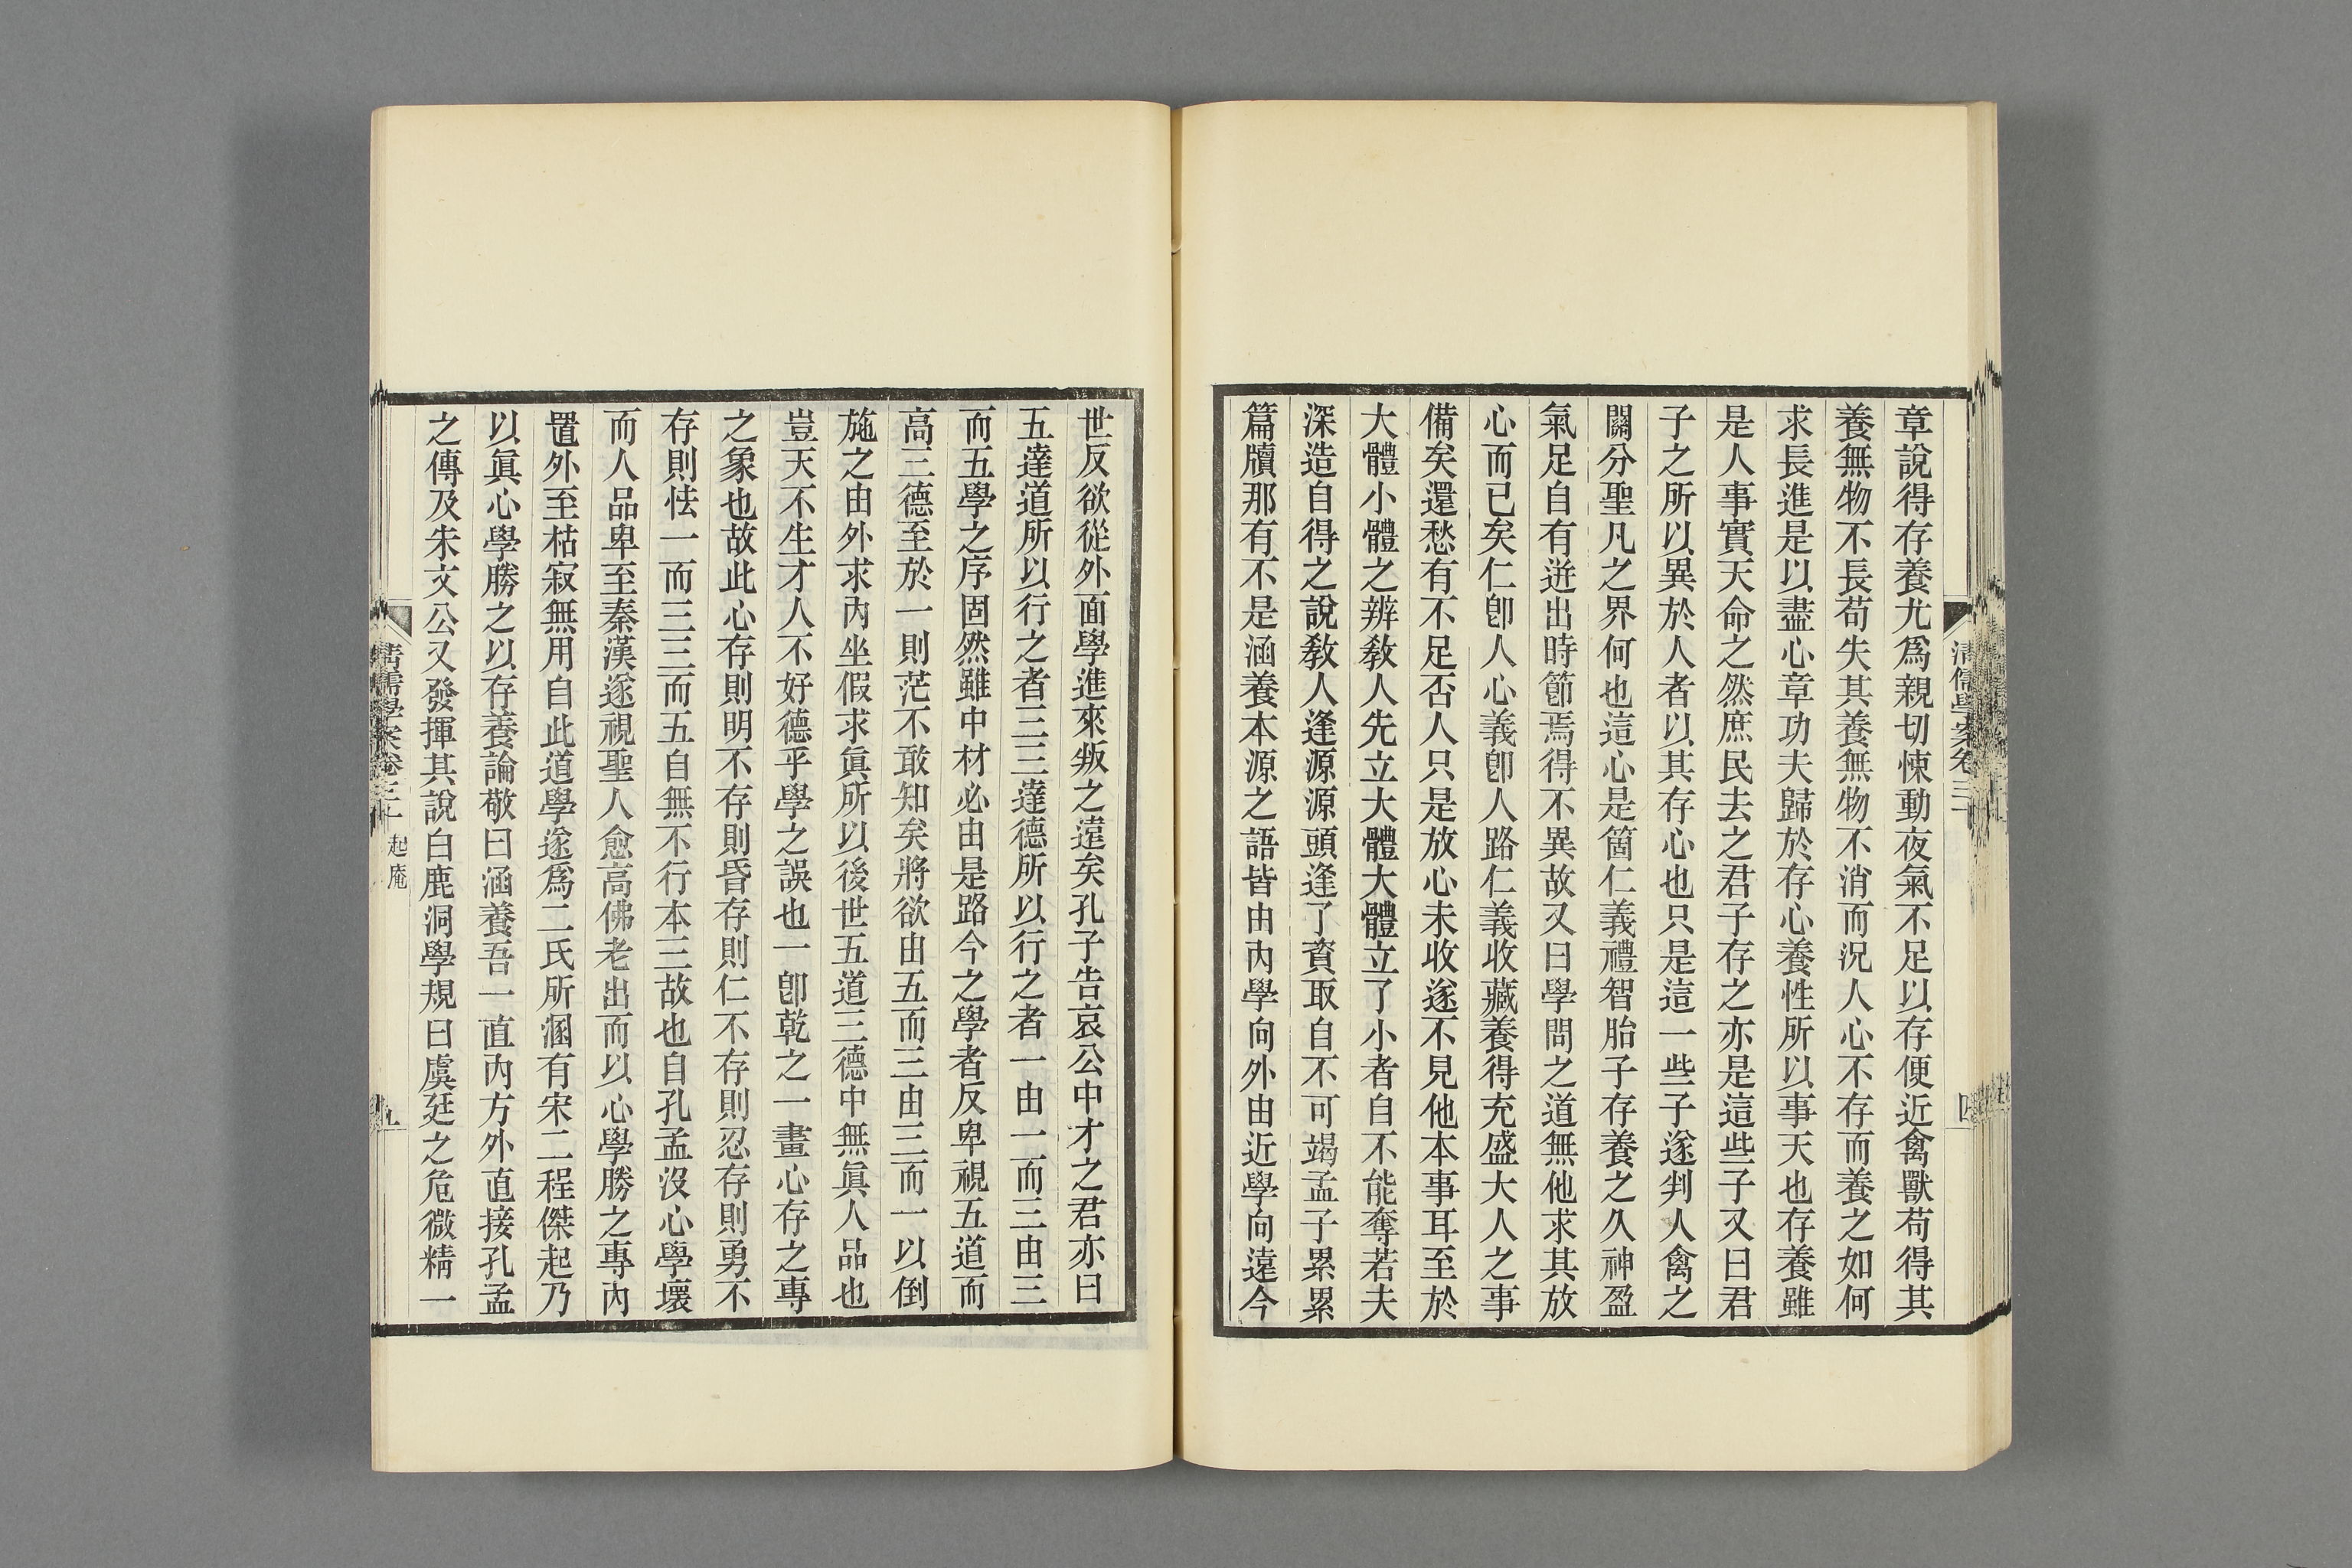 章說得存養尤爲親切悚動夜氣不足以存便近禽獸苟得其
養無物不長苟失其養無物不消而況人心不存而養之如何
求長進是以盡心章功夫歸於存心養性所以事天也存養雖
是人事實天命之然庶民去之君子存之亦是這些子又曰君
子之所以異於人者以其存心也只是這一些子遂判人禽之
關分聖凡之界何也這心是箇仁義禮智胎子存養之久神盈
氣足自有迸出時節焉得不異故又曰學問之道無他求其放
心而已矣仁卽人心義卽人路仁義收藏養得充盛大人之事
備矣還愁有不足否人只是放心未收遂不見他本事耳至於
大體小體之辨敎人先立大體大體立了小者自不能奪若夫
深造自得之說敎人逢源源頭逢了資取自不可竭孟子累累
篇牘那有不是涵養本源之語皆由內學向外由近學向遠今
清儒學案卷三十
四
世反欲從外面學進來叛之遠矣孔子告哀公中才之君亦曰
五達道所以行之者三三達德所以行之者一由一而三由三
而五學之序固然雖中材必由是路今之學者反卑視五道而
高三德至於一則茫不敢知矣將欲由五而三由三而一以倒
施之由外求內坐假求眞所以後世五道三德中無眞人品也
豈天不生才人不好德乎學之誤也一卽乾之一畫心存之專
之象也故此心存則明不存則昏存則仁不存則忍存則勇不
存則怯一而三三而五自無不行本三故也自孔孟沒心學壞
而人品卑至秦漢遂視聖人愈高佛老出而以心學勝之專內
置外至枯寂無用自此道學遂爲二氏所溷有宋二程傑起乃
以眞心學勝之以存養論敬曰涵養吾一直內方外直接孔孟
之傳及朱文公又發揮其說白鹿洞學規曰虞廷之危微精一
清儒學案卷三十 起庵
五